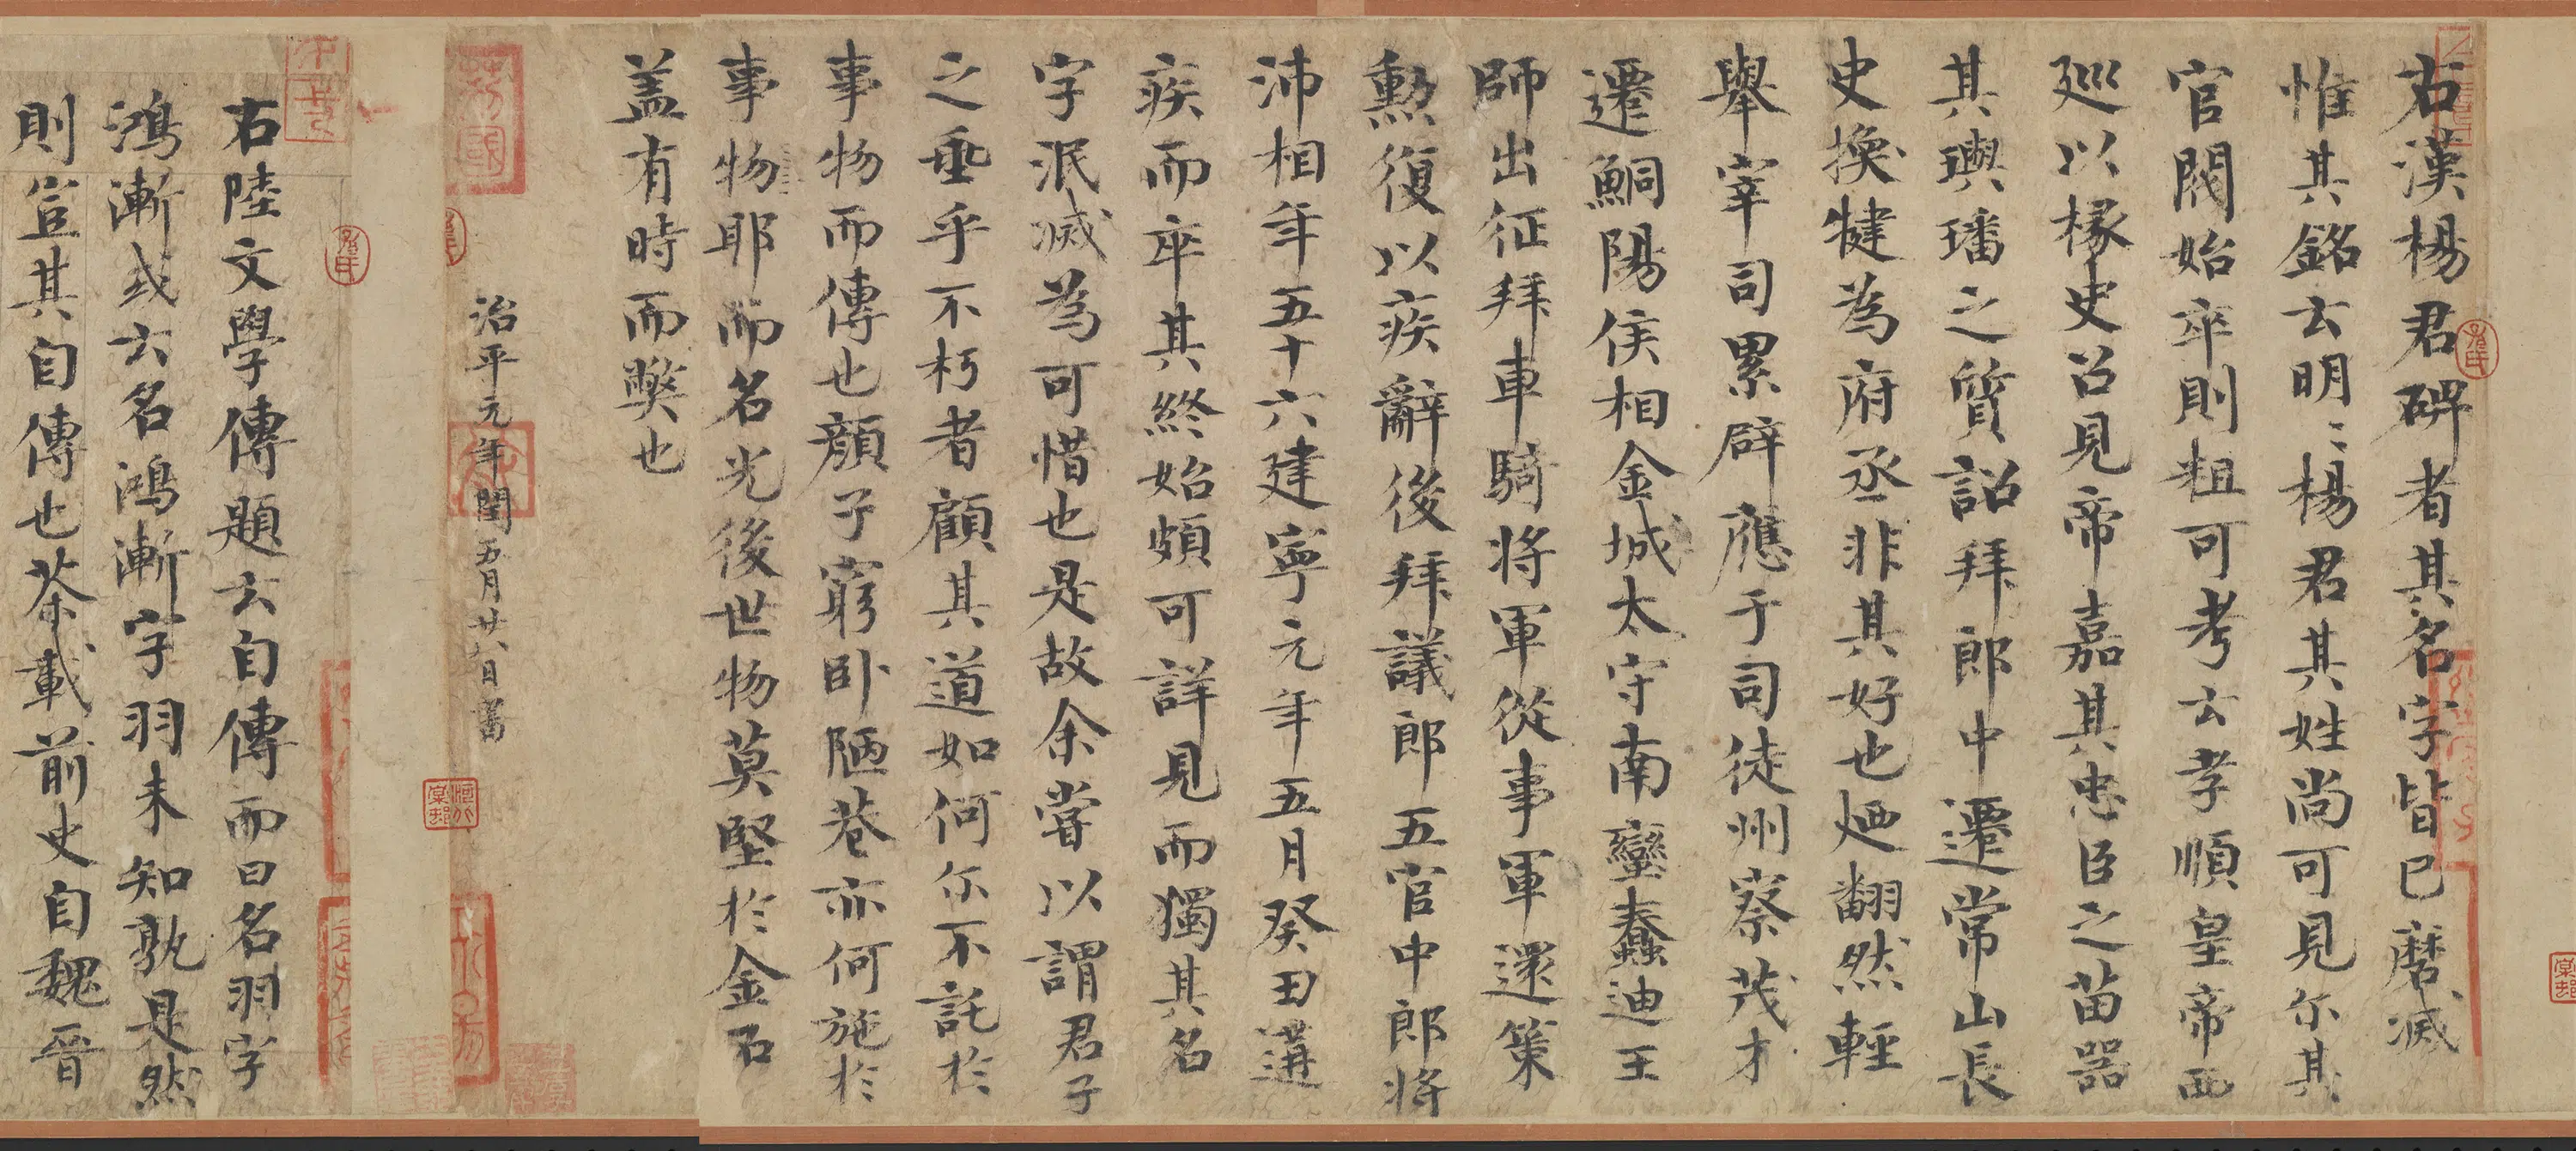 右漢楊君碑者其名字皆已磨滅
惟其銘云明〻楊君其姓尚可見尒其
官閥始卒則粗可考云孝順皇帝西
巡以椽史召見帝嘉其忠臣之苗器
其璵璠之質詔拜郎中遷常山長
史換犍為府丞非其好也廼翻然輕
舉宰司累辟應于司徒州察茂才
遷鮦陽侯相金城太守南蠻蠢迪王
師出征拜車騎將軍從事軍還策
勲復以疾辭後拜議郎五官中郎將
沛相年五十六建寧元年五月癸丑遘
疾而卒其終始頗可詳見而獨其名
字泯滅為可惜也是故余嘗以謂君子
之垂乎不朽者顧其道如何尒不託於
事物而傳也顏子窮卧陋巷亦何施於
事物耶而名光後世物莫堅於金石
盖有時而獘也
治平元年閏五月廿八日書
右陸文學傳題云自傳而曰名羽字
鴻漸或云名鴻漸字羽未知孰是然
則豈其自傳也茶載前史自魏晉